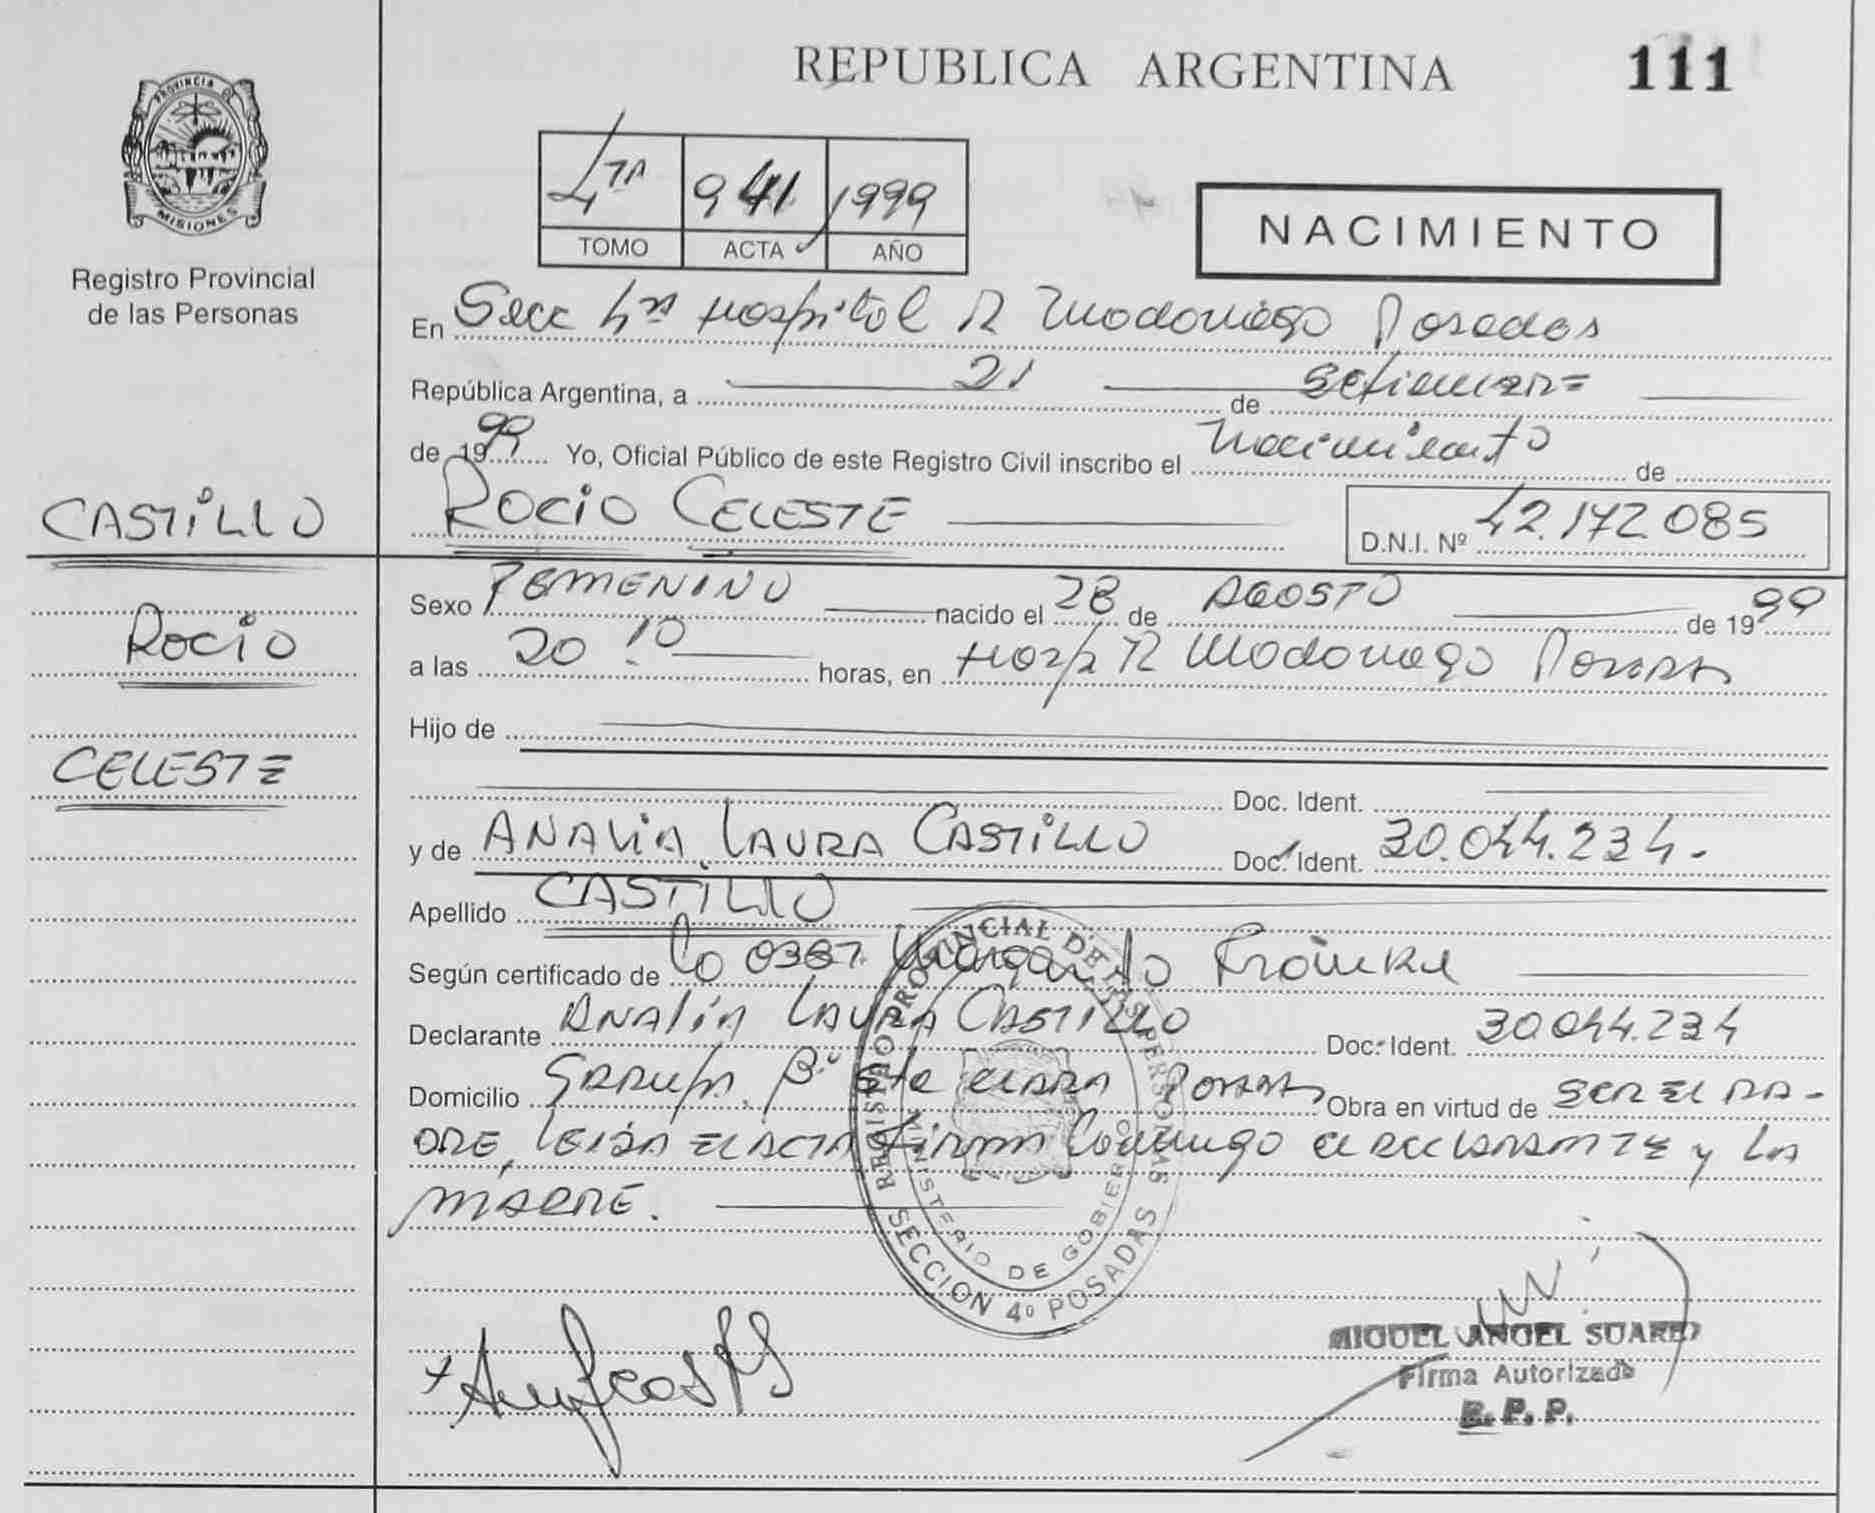 REPUBLICA ARGENTINA 111
PROVINCIA DE
MISIONES
Registro Provincial
de las Personas
4TA 941 1999
TOMO ACTA AÑO
NACIMIENTO
En Secc 4ta Hospital R Madariaga Posadas
República Argentina, a 21 de Setiembre
de 1999 Yo, Oficial Público de este Registro Civil inscribo el Nacimiento de
CASTILLO
ROCIO CELESTE
D.N.I. Nº 42.172.085
ROCIO
CELESTE
Sexo FEMENINO nacido el 28 de AGOSTO de 1999
a las 20 10 horas, en Hosp R Madariaga Posadas
Hijo de
Doc. Ident.
y de ANALIA LAURA CASTILLO Doc. Ident. 30.044.234.
Apellido CASTILLO
Según certificado de
Declarante ANALIA LAURA CASTILLO Doc. Ident. 30.044.234
Domicilio Bº Sta CLARA Posadas Obra en virtud de SER EL DA-
LEIDA EL ACTA FIRMA Conmigo el DECLARANTE y LA
MADRE.
REGISTRO PROVINCIAL DE LAS PERSONAS
MINISTERIO DE GOBIERNO
SECCION 4º POSADAS
MIGUEL ANGEL SUAREZ
Firma Autorizada
R. P. P.